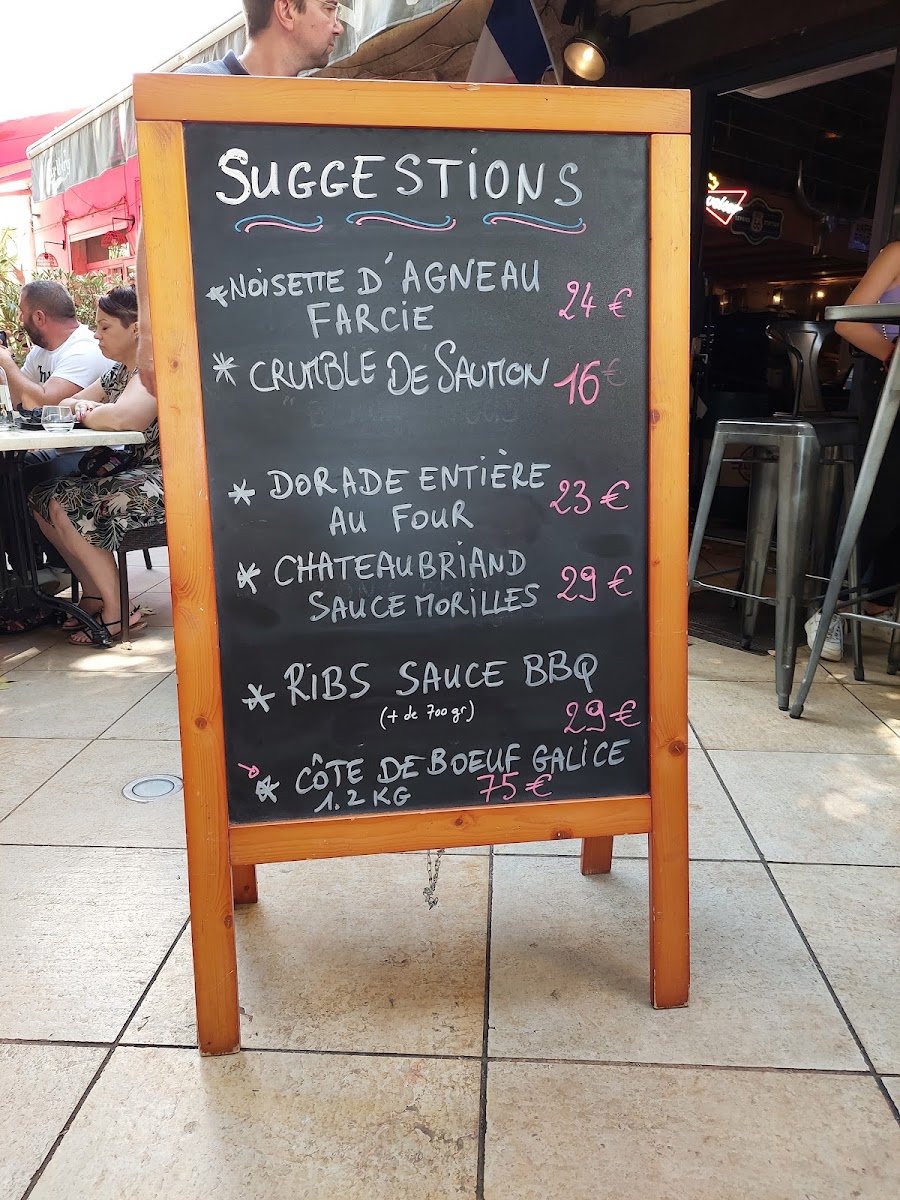 SUGGESTIONS
* NOISETTE D'AGNEAU
FARCIE 24 €
* CRUMBLE DE SAUMON 16 €
* DORADE ENTIÈRE
AU FOUR 23 €
* CHATEAUBRIAND
SAUCE MORILLES 29 €
* RIBS SAUCE BBQ
(+ de 700 gr) 29 €
* CÔTE DE BOEUF GALICE
1.2 KG 75 €